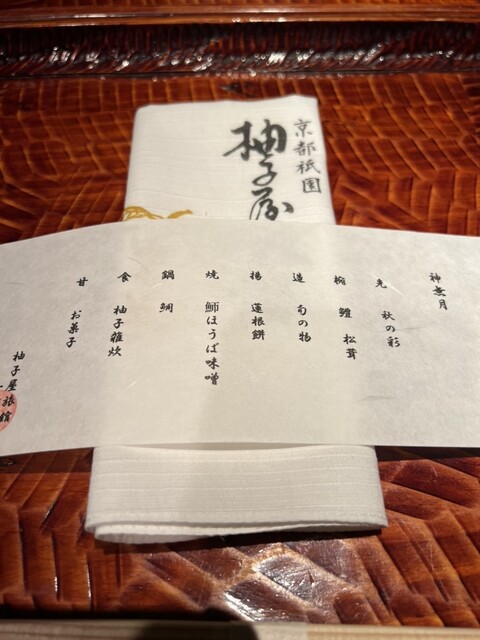 京都祇園
柚子屋
神無月
先 秋の彩
椀 鱧 松茸
造 旬の物
揚 蓮根餅
焼 鰤ほうば味噌
鍋 鯛
食 柚子雑炊
甘 お菓子
柚子屋旅館